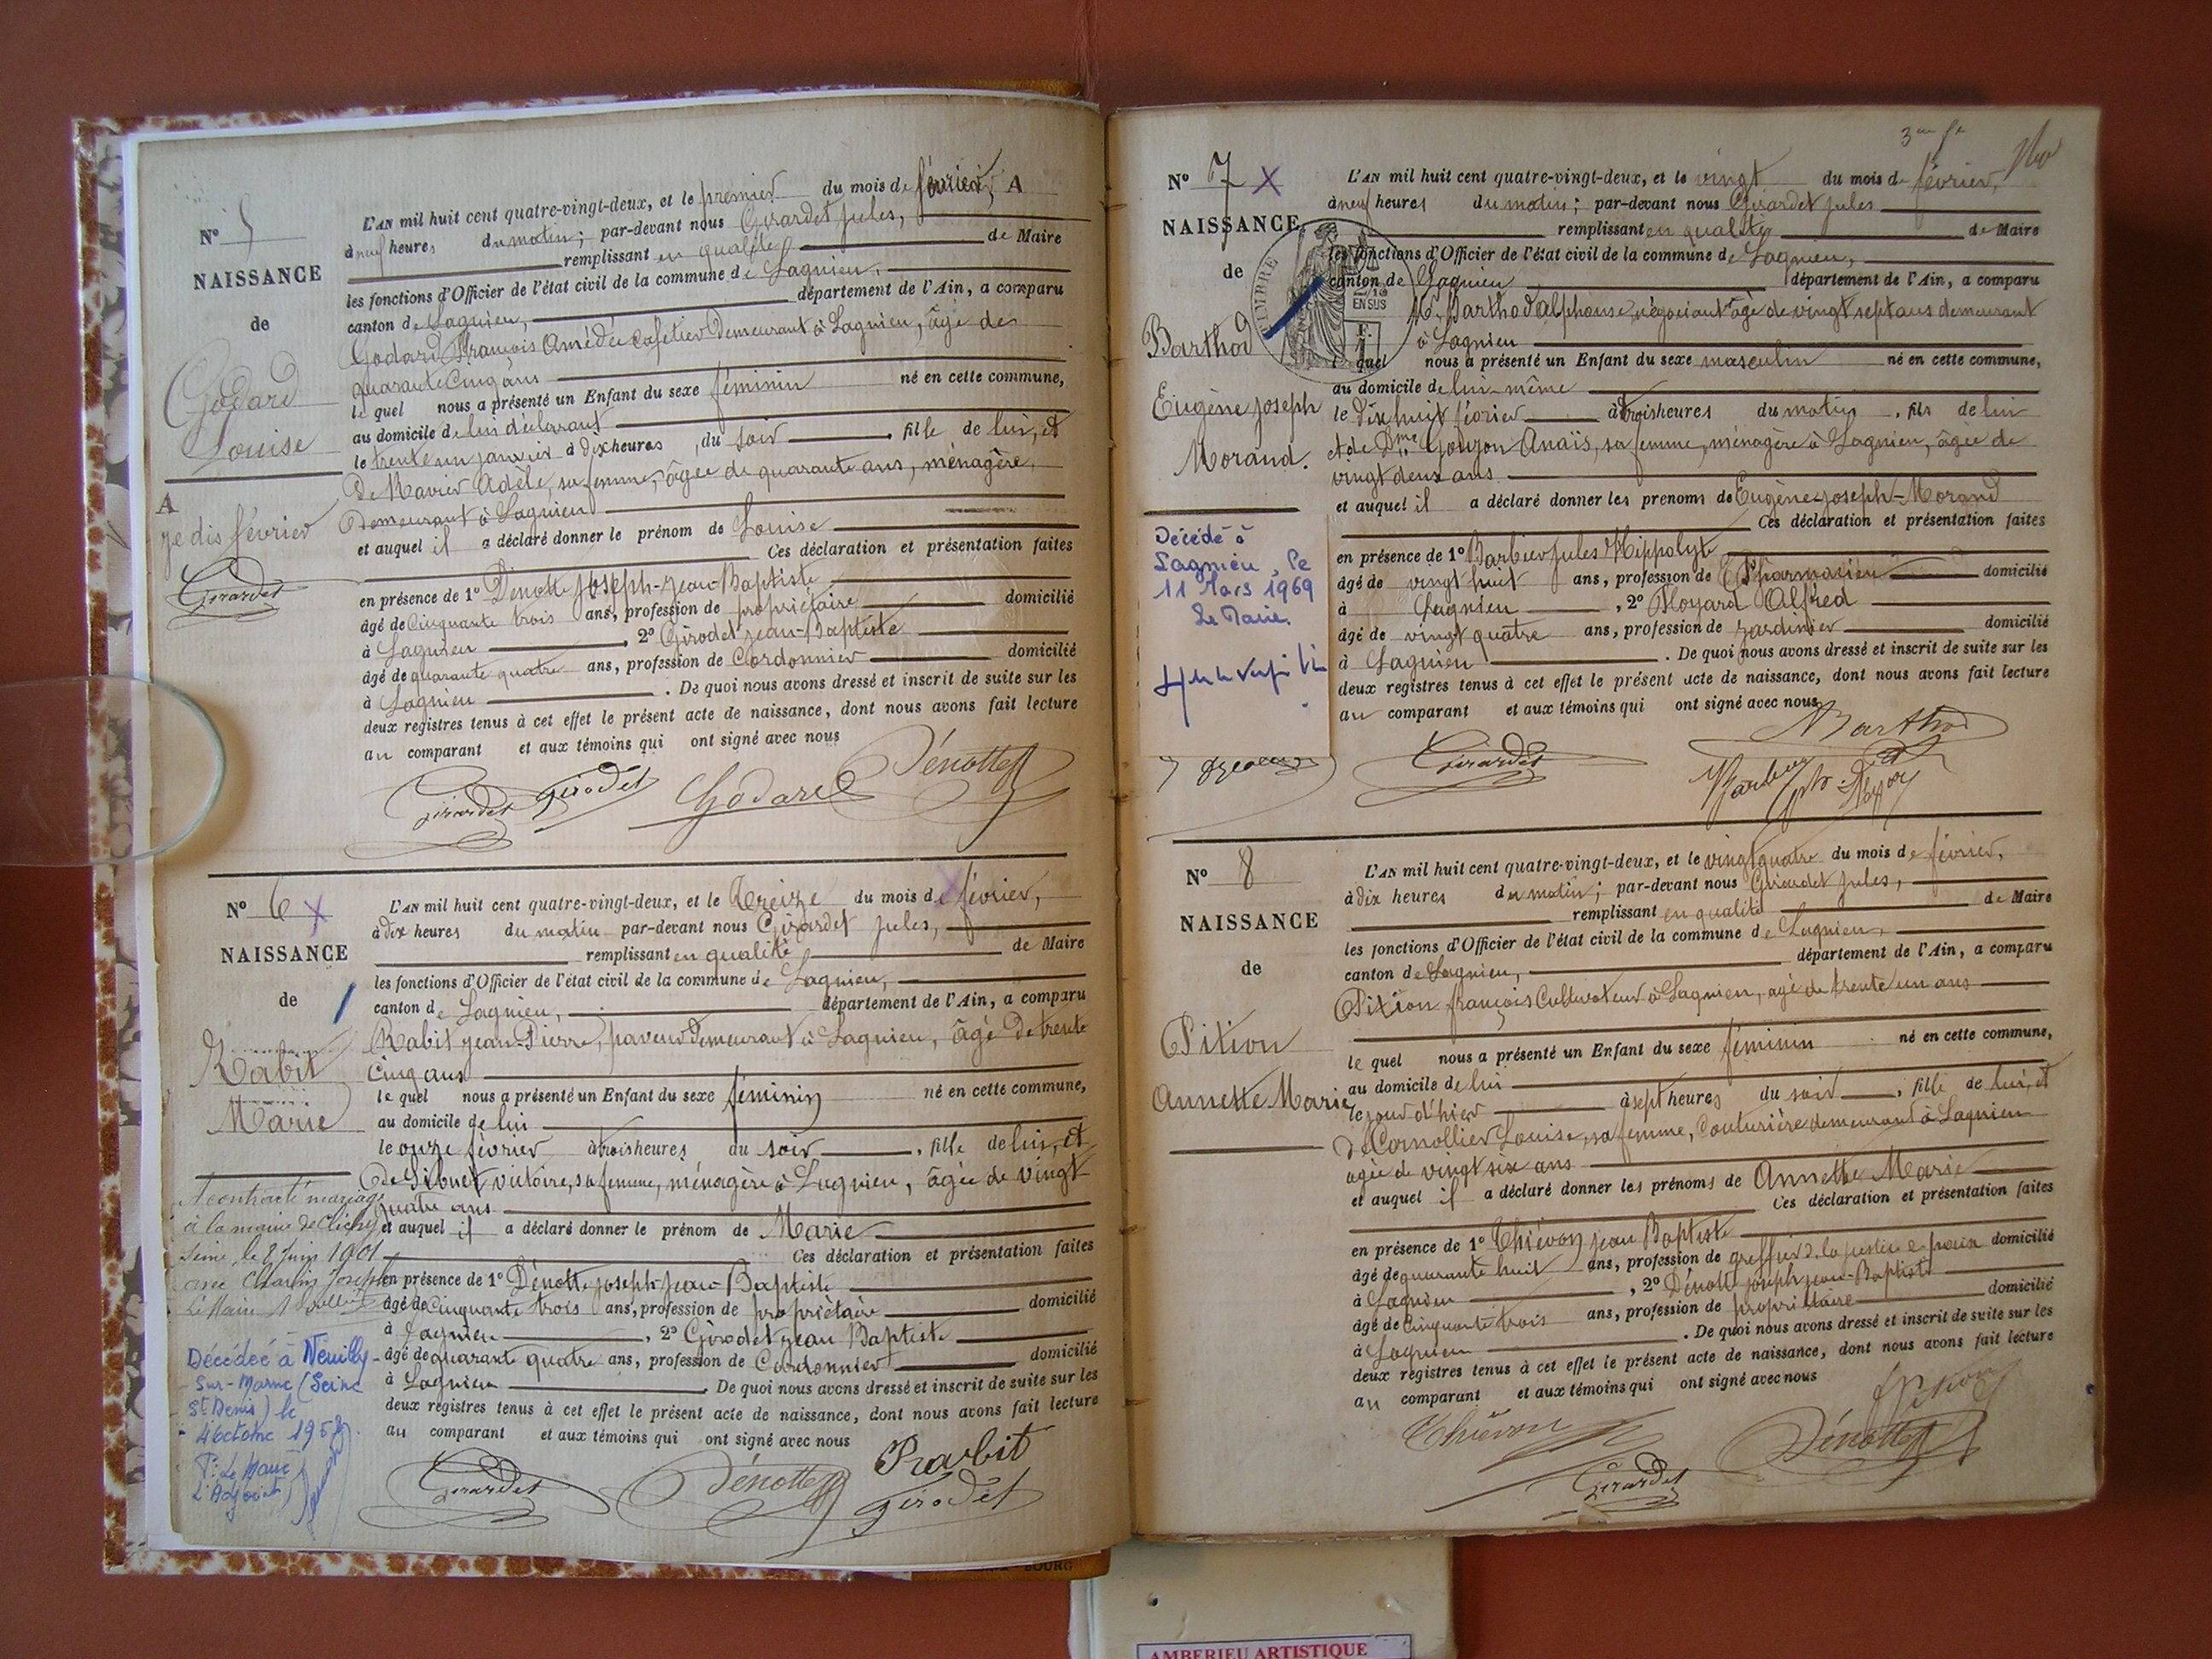 L'AN mil huit cent quatre-vingt-deux, et le premier du mois de février, A
N° 5
à neuf heures du matin; par-devant nous Girardet Jules,
remplissant en qualité de Maire
NAISSANCE
les fonctions d'Officier de l'état civil de la commune de Lagnieu,
canton de Lagnieu, département de l'Ain, a comparu
de
Godard François Amédée Cafetier Demeurant à Lagnieu, âgé de
quarante Cinq ans
le quel nous a présenté un Enfant du sexe féminin né en cette commune,
Godard
Louise
au domicile de lui déclarant
le trente un janvier à dix heures du soir, fille de lui, et
De Ravier Adèle, sa femme, âgée de quarante ans, ménagère,
Demeurant à Lagnieu
A
je dis février
Girardet
et auquel il a déclaré donner le prénom de Louise
Ces déclaration et présentation faites
en présence de 1° Dénotte Joseph-Jean-Baptiste
âgé de Cinquante trois ans, profession de propriétaire domicilié
à Lagnieu, 2° Girodet Jean-Baptiste
âgé de quarante quatre ans, profession de Cordonnier domicilié
à Lagnieu. De quoi nous avons dressé et inscrit de suite sur les
deux registres tenus à cet effet le présent acte de naissance, dont nous avons fait lecture
au comparant et aux témoins qui ont signé avec nous
Girardet Girodet Godard Dénotte
N° 6 X
L'AN mil huit cent quatre-vingt-deux, et le Treize du mois de février,
à dix heures du matin par-devant nous Girardet Jules,
NAISSANCE
remplissant en qualité de Maire
les fonctions d'Officier de l'état civil de la commune de Lagnieu,
de
canton de Lagnieu, département de l'Ain, a comparu
Rabit Jean-Pierre, paveur Demeurant à Lagnieu, âgé De trente
Cinq ans
Rabit
Marie
le quel nous a présenté un Enfant du sexe féminin né en cette commune,
au domicile de lui
le onze février à trois heures du soir, fille de lui, et
De Sibuet Victoire, sa femme, ménagère à Lagnieu, âgée de vingt
quatre ans
et auquel il a déclaré donner le prénom de Marie
Ces déclaration et présentation faites
A contracté mariage
à la mairie de Clichy
Seine, le 8 Juin 1901
avec Charlin Joseph
Le Maire
en présence de 1° Dénotte Joseph-Jean-Baptiste
âgé de Cinquante trois ans, profession de propriétaire domicilié
à Lagnieu, 2° Girodet Jean Baptiste
âgé de quarante quatre ans, profession de Cordonnier domicilié
à Lagnieu. De quoi nous avons dressé et inscrit de suite sur les
deux registres tenus à cet effet le présent acte de naissance, dont nous avons fait lecture
au comparant et aux témoins qui ont signé avec nous
Décédée à Neuilly-
Sur-Marne (Seine
St Denis) le
4 octobre
P. Le Maire
L'Adjoint,
Girardet Dénotte Rabit
Girodet
N° 7 X
L'AN mil huit cent quatre-vingt-deux, et le vingt du mois de février,
à neuf heures du matin; par-devant nous Girardet Jules
NAISSANCE
remplissant en qualité de Maire
les fonctions d'Officier de l'état civil de la commune de Lagnieu,
de
canton de Lagnieu département de l'Ain, a comparu
TIMBRE
EN SUS
M. Barthod Alphonse, négociant âgé de vingt sept ans demeurant
à Lagnieu
Barthod
Eugène Joseph
Morand.
le quel nous a présenté un Enfant du sexe masculin né en cette commune,
au domicile de lui-même
le dix huit février à trois heures du matin, fils de lui
et de Dme Goujon Anaïs, sa femme, ménagère à Lagnieu, âgée de
vingt deux ans
et auquel il a déclaré donner les prénoms de Eugène-Joseph-Morand
Ces déclaration et présentation faites
Décédé à
Lagnieu, le
11 Mars 1969
Le Maire.
en présence de 1° Barbier Jules Hippolyte
âgé de vingt huit ans, profession de Pharmacien domicilié
à Lagnieu, 2° Ployard Alfred
âgé de vingt quatre ans, profession de Jardinier domicilié
à Lagnieu. De quoi nous avons dressé et inscrit de suite sur les
deux registres tenus à cet effet le présent acte de naissance, dont nous avons fait lecture
au comparant et aux témoins qui ont signé avec nous
Girardet Barthod
N° 8
L'AN mil huit cent quatre-vingt-deux, et le vingt quatre du mois de février,
à dix heures du matin; par-devant nous Girardet Jules,
NAISSANCE
remplissant en qualité de Maire
les fonctions d'Officier de l'état civil de la commune de Lagnieu,
de
canton de Lagnieu, département de l'Ain, a comparu
Pition François Cultivateur à Lagnieu, âgé de trente un ans
Pition
Annette Marie
le quel nous a présenté un Enfant du sexe féminin né en cette commune,
au domicile de lui
le jour d'hier à sept heures du soir, fille de lui, et
de Cornollier Louise, sa femme, Couturière demeurant à Lagnieu
âgée de vingt six ans
et auquel il a déclaré donner les prénoms de Annette Marie
Ces déclaration et présentation faites
en présence de 1° Thiévon Jean Baptiste
âgé de quarante huit ans, profession de greffier de la justice de paix domicilié
à Lagnieu, 2° Dénotte Joseph Jean-Baptiste
âgé de Cinquante trois ans, profession de propriétaire domicilié
à Lagnieu. De quoi nous avons dressé et inscrit de suite sur les
deux registres tenus à cet effet le présent acte de naissance, dont nous avons fait lecture
au comparant et aux témoins qui ont signé avec nous
Thiévon Pition
Girardet Dénotte
BOURG
AMBERIEU ARTISTIQUE